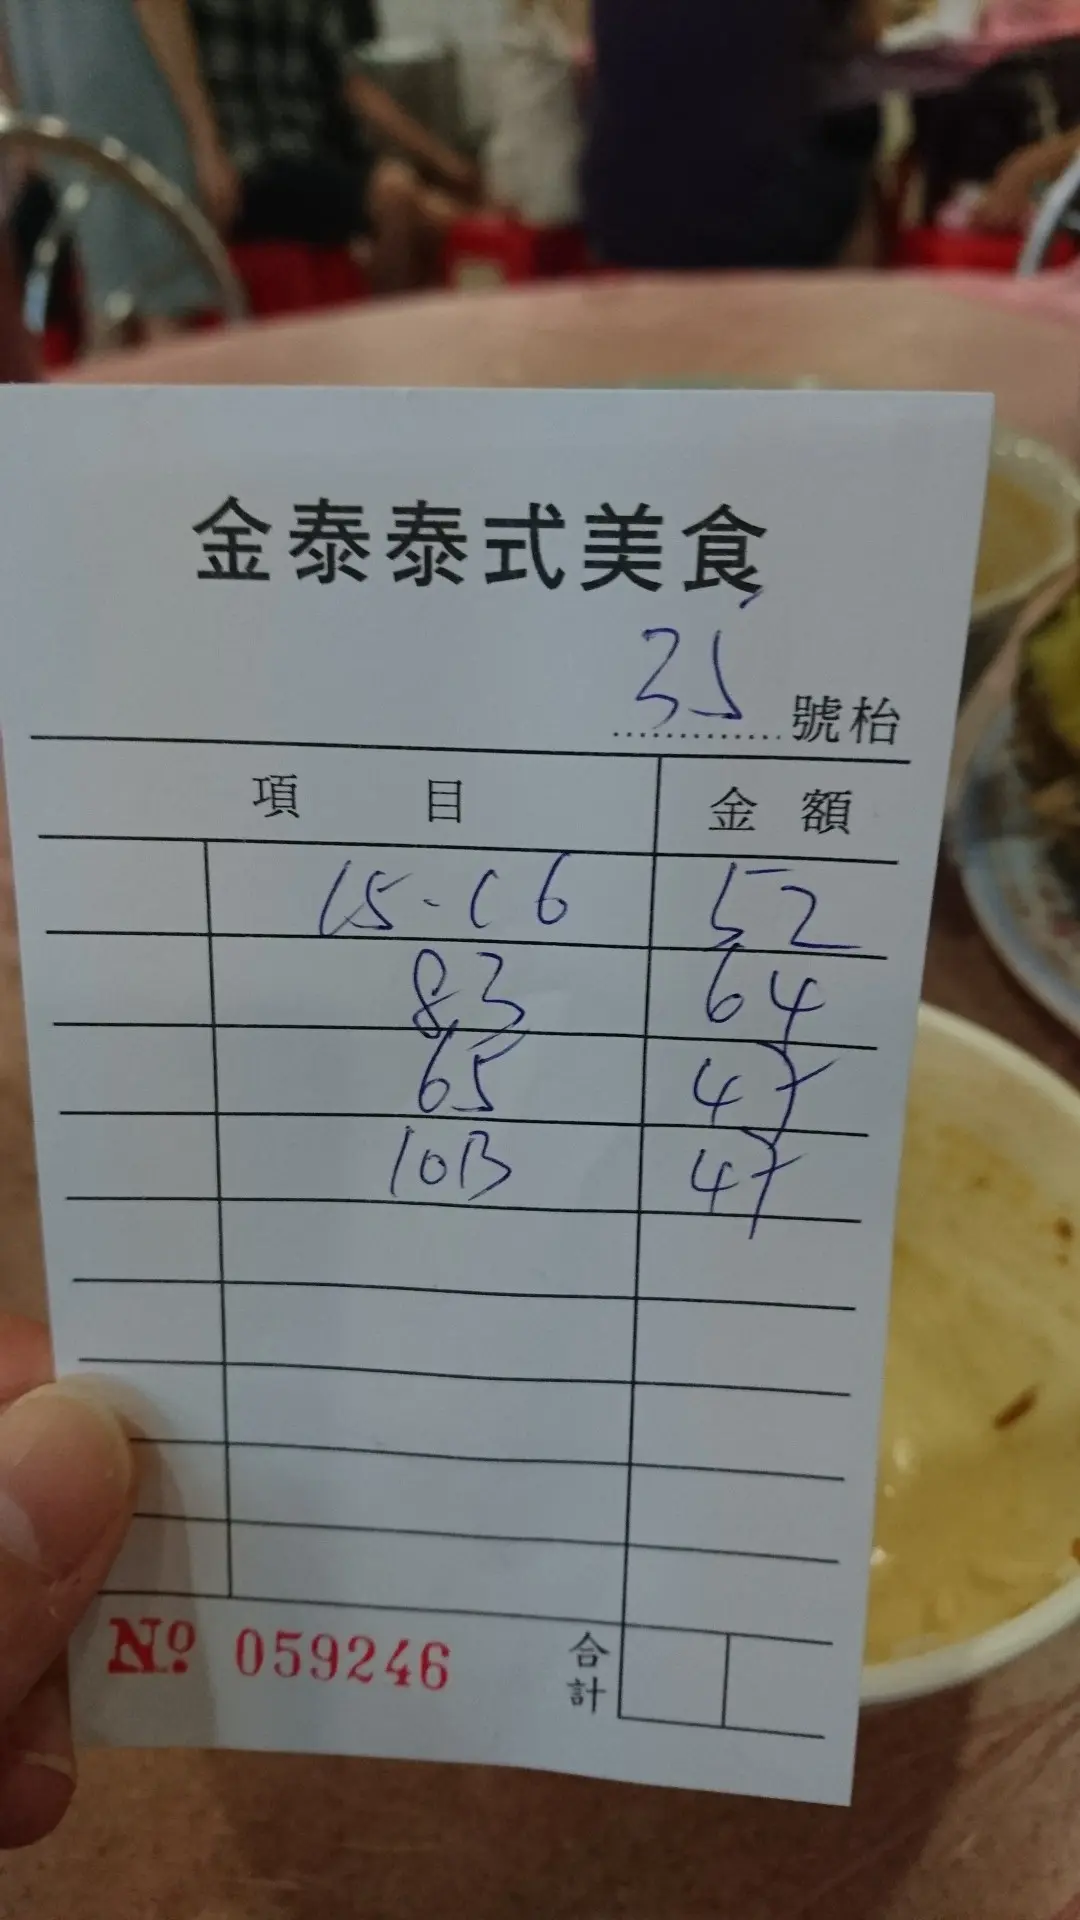 金泰泰式美食
35 號枱
項目 金額
15-16 52
83 64
65 47
10B 47
合計
Nº 059246